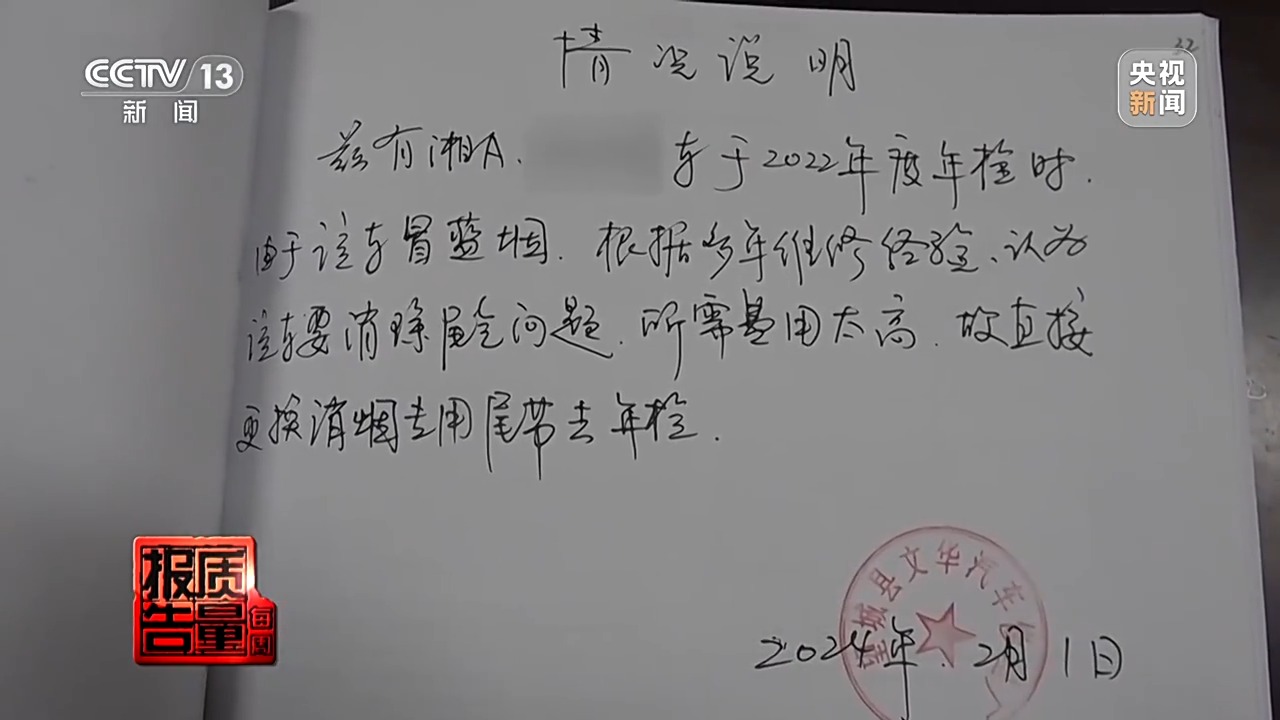 CCTV 13
新闻
央视
新闻
情况说明
兹有湘A.
车于2022年度年检时.
由于该车冒蓝烟.根据多年维修经验、认为
该车要消除尾气问题.所需费用太高.故直接
更换消烟专用尾带去年检.
城县文华汽车
2024年.2月1日
质量
报告
每周